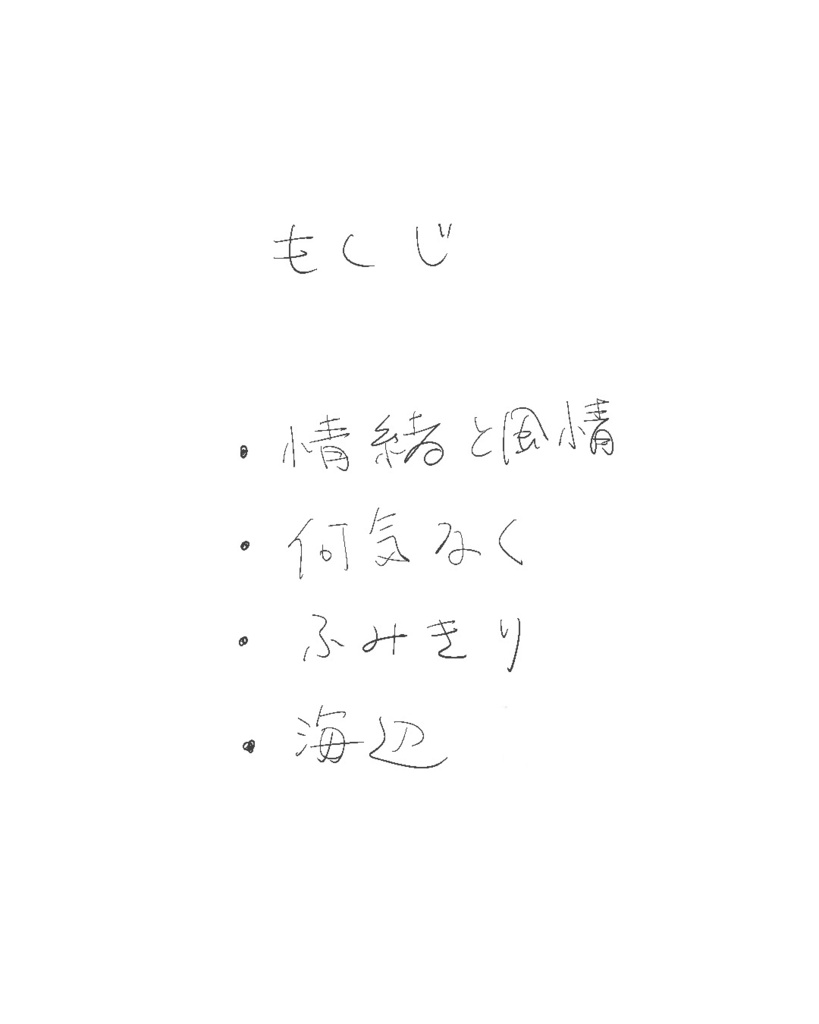 もくじ
・情緒と風情
・何気なく
・ふみきり
・海辺